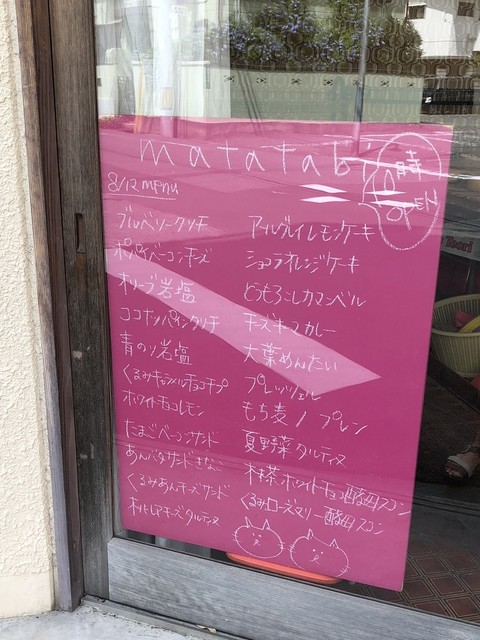 matatabi
10時
OPEN
8/12 menu
ブルーベリークリチ
ポパイベーコンチーズ
オリーブ岩塩
ココナッツパインクリチ
青のり岩塩
くるみキャラメルチョコチップ
ホワイトチョコレモン
たまごベーコンサンド
あんバタサンドきなこ
くるみあんチーズサンド
タルティヌ
アールグレイレモンケーキ
ショコラオレンジケーキ
とうもろこしカマンベール
チーズキーマカレー
大葉めんたい
プレッツェル
もち麦 / プレーン
夏野菜タルティヌ
抹茶ホワイトチョコ酵母スコーン
くるみローズマリー酵母スコーン